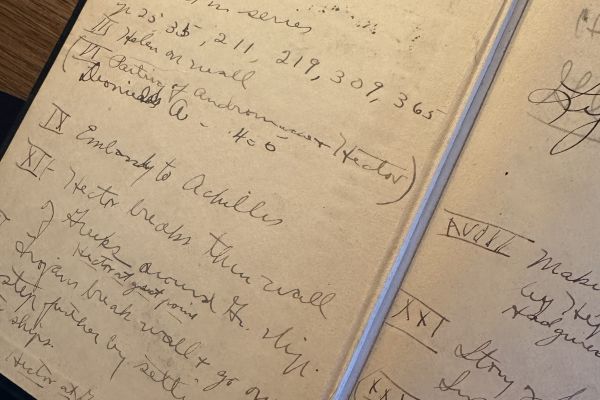 in series
p 25 35, 211, 219, 309, 365
III Helen on wall
(VI Parting of Andromache + Hector)
Diomedes A - 400
IX Embassy to Achilles
XII - Hector breaks thru wall
of Greeks around Gr. ships.
Hector at great point
Trojans break wall + go on
step further by setti
ships.
Hector at
XVIII Maki
by Hep
XXI Story of
(XX